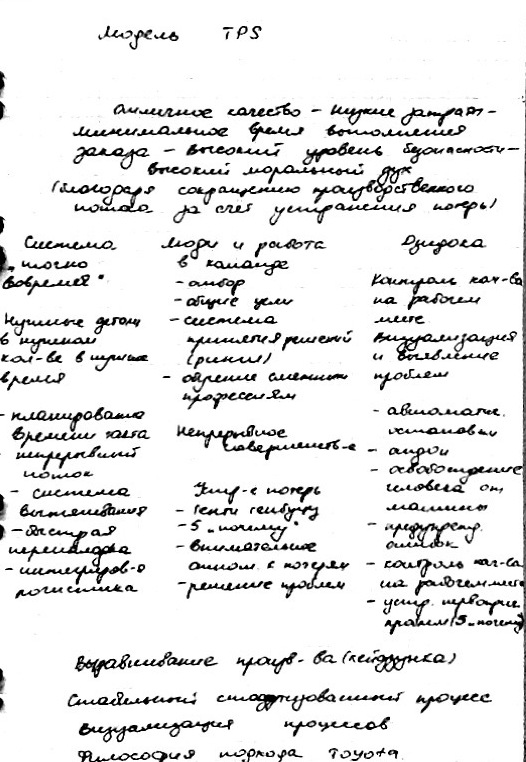 Модель TPS
Отличное качество – Низкие затраты –
минимальное время выполнения
заказа – Высокий уровень безопасности –
Высокий моральный дух
(благодаря сокращению производственного
потока за счет устранения потерь)
Система
"точно
вовремя"
Нужные детали
в нужном
кол-ве в нужное
время
- планирование
времени такта
- непрерывный
поток
- система
вытягивания
- быстрая
переналадка
- интегриров-я
логистика
Люди и работа
в команде
- отбор
- общие цели
- система
принятия решений
(ринги)
- обучение смежным
профессиям
Непрерывное
совершенств-е
Устр-е потерь
- генти генбуцу
- 5 "почему"
- Внимательное
отнош. к потерям
- решение проблем
Дзидока
Контроль кач-ва
на рабочем
месте
Визуализация
и выявление
проблем
- автоматич.
остановки
- андон
- освобождение
человека от
машины
- предупрежд.
ошибок
- контроль кач-ва
на рабочем месте
- устр. первопричин
проблем (5 "почему")
Выравнивание произв-ва (хейдзунка)
Стабильный стандартизованный процесс
Визуализация процессов
Философия подхода Toyota